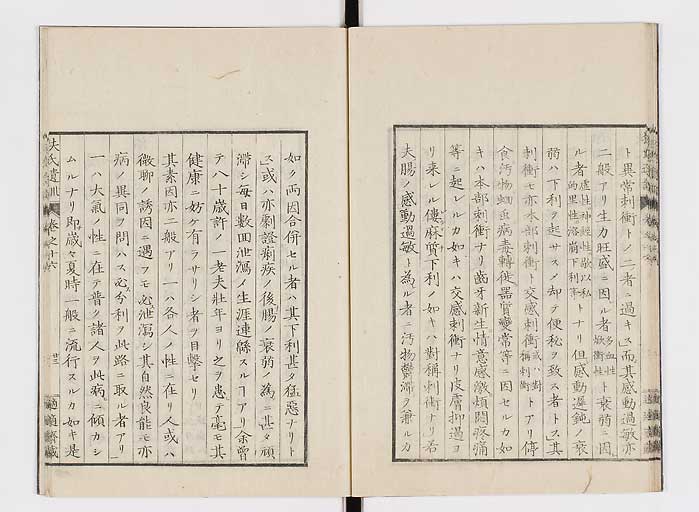 ト異常刺衝トノ二者ニ過キス而其感動過敏亦
二般アリ生力旺盛ニ因ル者多血性焮衝性ト衰弱ニ因
ル者虚性神経性ト
トナリ但感動遅鈍ノ衰
弱ハ下利ヲ起サスノ却テ便秘ヲ致ス者トス其
刺衝モ亦本部刺衝ト交感刺衝或ハ対称刺衝トアリ停
食汚物蚘虫病毒転徙器質変常等ニ因セルカ如
キハ本部刺衝ナリ歯牙新生情意感激煩悶疼痛
等ニ起レルカ如キハ交感刺衝ナリ皮膚抑遏ヨ
リ来レル僂麻質下利ノ如キハ対称刺衝ナリ若
夫腸ノ感動過敏ト為ル者ニ汚物鬱滞ヲ兼ルカ
如ク両因合併セル者ハ其下利甚タ猛悪ナリト
ス或ハ亦劇證痢疾ノ後腸ノ衰弱ノ為ニ甚タ頑
滞シ毎日数回泄瀉ノ生涯連緜スルヿアリ余曽
テ八十歳許ノ一老夫壮年ヨリ之ヲ患テ毫モ其
健康ニ妨ケ有ラサリシ者ヲ目撃セリ
其素因亦二般アリ一ハ各人ノ性ニ在リ人或ハ
微聊ノ誘因ニ遇フモ必泄瀉シ其自然良能モ亦
病ノ異同ヲ問ハス必分利ヲ此路ニ取ル者アリ
一ハ大気ノ性ニ在テ普ク諸人ヲ此病ニ傾カシ
ムルナリ即歳々夏時一般ニ流行スルカ如キ是
扶氏遺訓
巻之十六
適適斎蔵